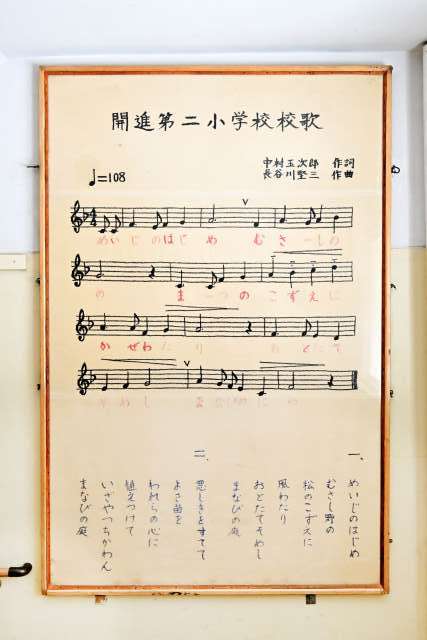 開進第二小学校校歌
中村玉次郎 作詞
長谷川堅三 作曲
♩=108
4
4
めいじのはじ め むさーしの
の ま ーつ の こずえに
かぜわたり お とたて
そ め し ま なびの に わ
一、
めいじのはじめ
むさし野の
松のこずえに
風わたり
おとたてそめし
まなびの庭
二、
悪しきをすてて
よき苗を
われらの心に
植えつけて
いざやつちかわん
まなびの庭